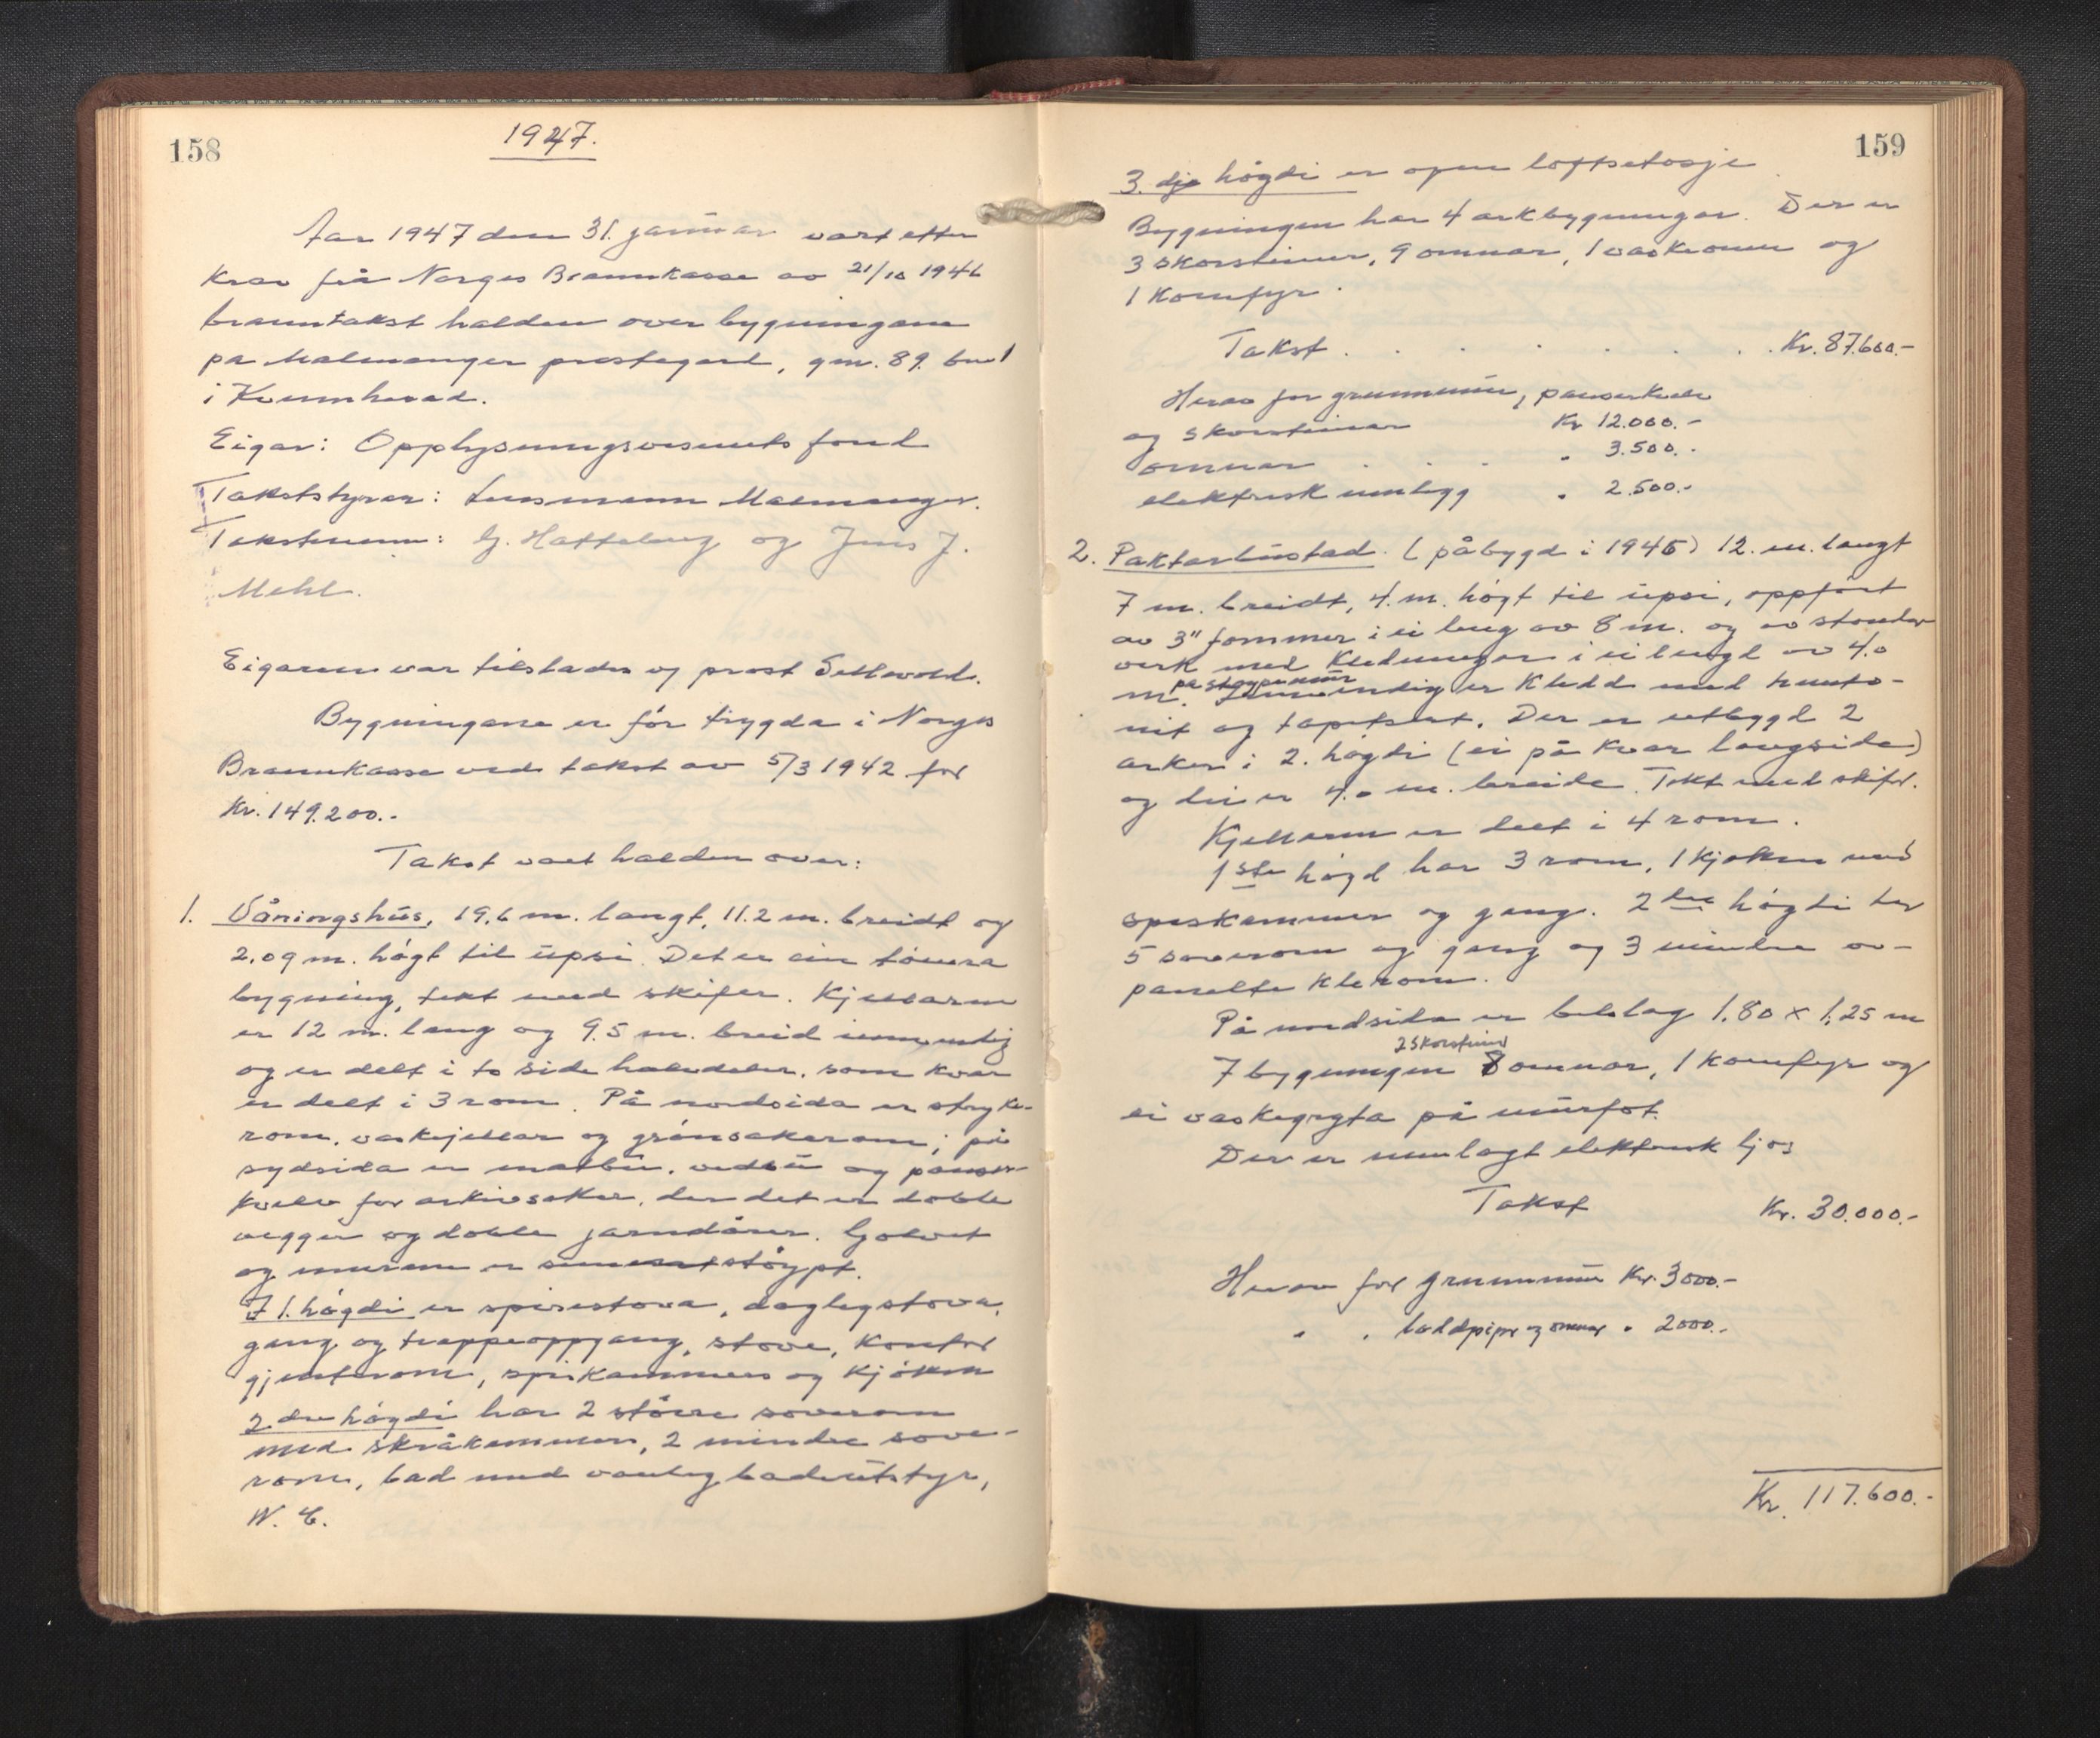 158
1947.
Aar 1947 den 31. januar vart etter
krav frå Norges Brannkasse av 21/10 1946
branntakst halden over bygningane
på Malmanger prestegard, gnr. 89. bnr 1
i Kvinnherad.
Eigar: Opplysningsvesenets fond
Takststyrar: Lensmann Malmanger.
Takstmenn: G. Hatteberg og Jens J.
Mehl.
Eigaren var tilstades og prost Sellevold.
Bygningane er för trygda i Norges
Brannkasse ved takst av 5/3 1942 for
Kr. 149.200.-
Takst vart halden over:
1. Våningshus, 19,6 m. langt, 11.2 m. breidt og
2.09 m. högt til upsi. Det er ein tömra
bygning, tekt med skifer. Kjellaren
er 12 m. lang og 9.5 m. breid innvendig
og er delt i to side halvdeler, som kvar
er delt i 3 rom. På nordsida er stryke-
rom, vaskjellar og grönsakerom; på
sydsida er matbu, vedbu og panser-
kvelv for arkivsaker, der det er doble
vegger og doble jarndörer. Golvet
og murane er sementstöypt.
I 1. högdi er spisestova, daglegstova,
gang og trappeoppgang, stove, kontor
gjenterom, spiskammers og kjöken
2 dre högdi har 2 störe soverom
med skråkammers, 2 mindre sove-
rom, bad med vanleg badeutstyr,
W. C.
159
3. dje högdi er open loftsetasje
Bygningen har 4 arkbygningar. Der er
3 skorsteiner, 9 omnar, 1 vaskeomn og
1 Komfyr.
Takst . . . . . . . Kr. 87.600.-
Herav for grunnmur, panserkvelv
og skorsteinar Kr 12.000.-
omnar . . . " 3.500.-
elektrisk innlegg " 2.500.-
2. Paktarbustad. (påbygd i 1945) 12. m. langt
7 m. breidt, 4. m. högt til upsi, oppfört
av 3" tommer i ei leng av 8 m. og av stender
verk med Kledningar i ei lengd av 4.0
på støypemur
m. Innvendig er kledd med hunto-
nit og tapetsert. Der er utbygd 2
arker i 2. högdi (ei på kvar langside)
og dei er 4.0 m. breide. Tekt med skifer.
Kjellaren er delt i 4 rom.
1ste högd har 3 rom, 1 kjøken med
speskammer og gang. 2dre högdi har
5 soverom og gang og 3 mindre av-
panelte klerom.
På nordsida er beslag 1.80 x 1,25 m
2 skorstein
I bygningen 8 omnar, 1 komfyr og
ei vaskegryta på murfot.
Der er innlagt elektrisk ljos
Takst Kr. 30.000.-
Herav for grunnmur Kr. 3000.-
" " baldpiper og omnar " 2000.-
Kr. 117.600.-